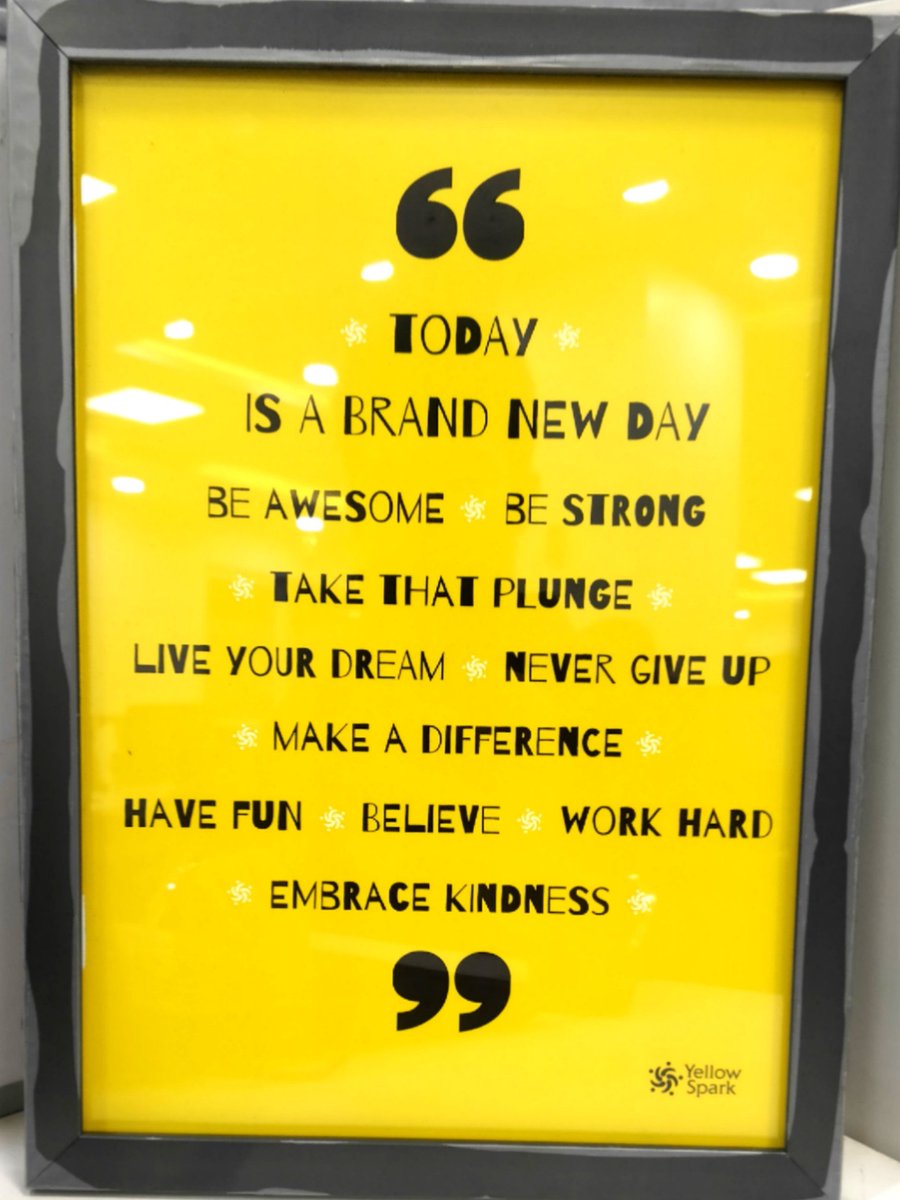 “
TODAY
IS A BRAND NEW DAY
BE AWESOME BE STRONG
TAKE THAT PLUNGE
LIVE YOUR DREAM NEVER GIVE UP
MAKE A DIFFERENCE
HAVE FUN BELIEVE WORK HARD
EMBRACE KINDNESS
”
Yellow
Spark